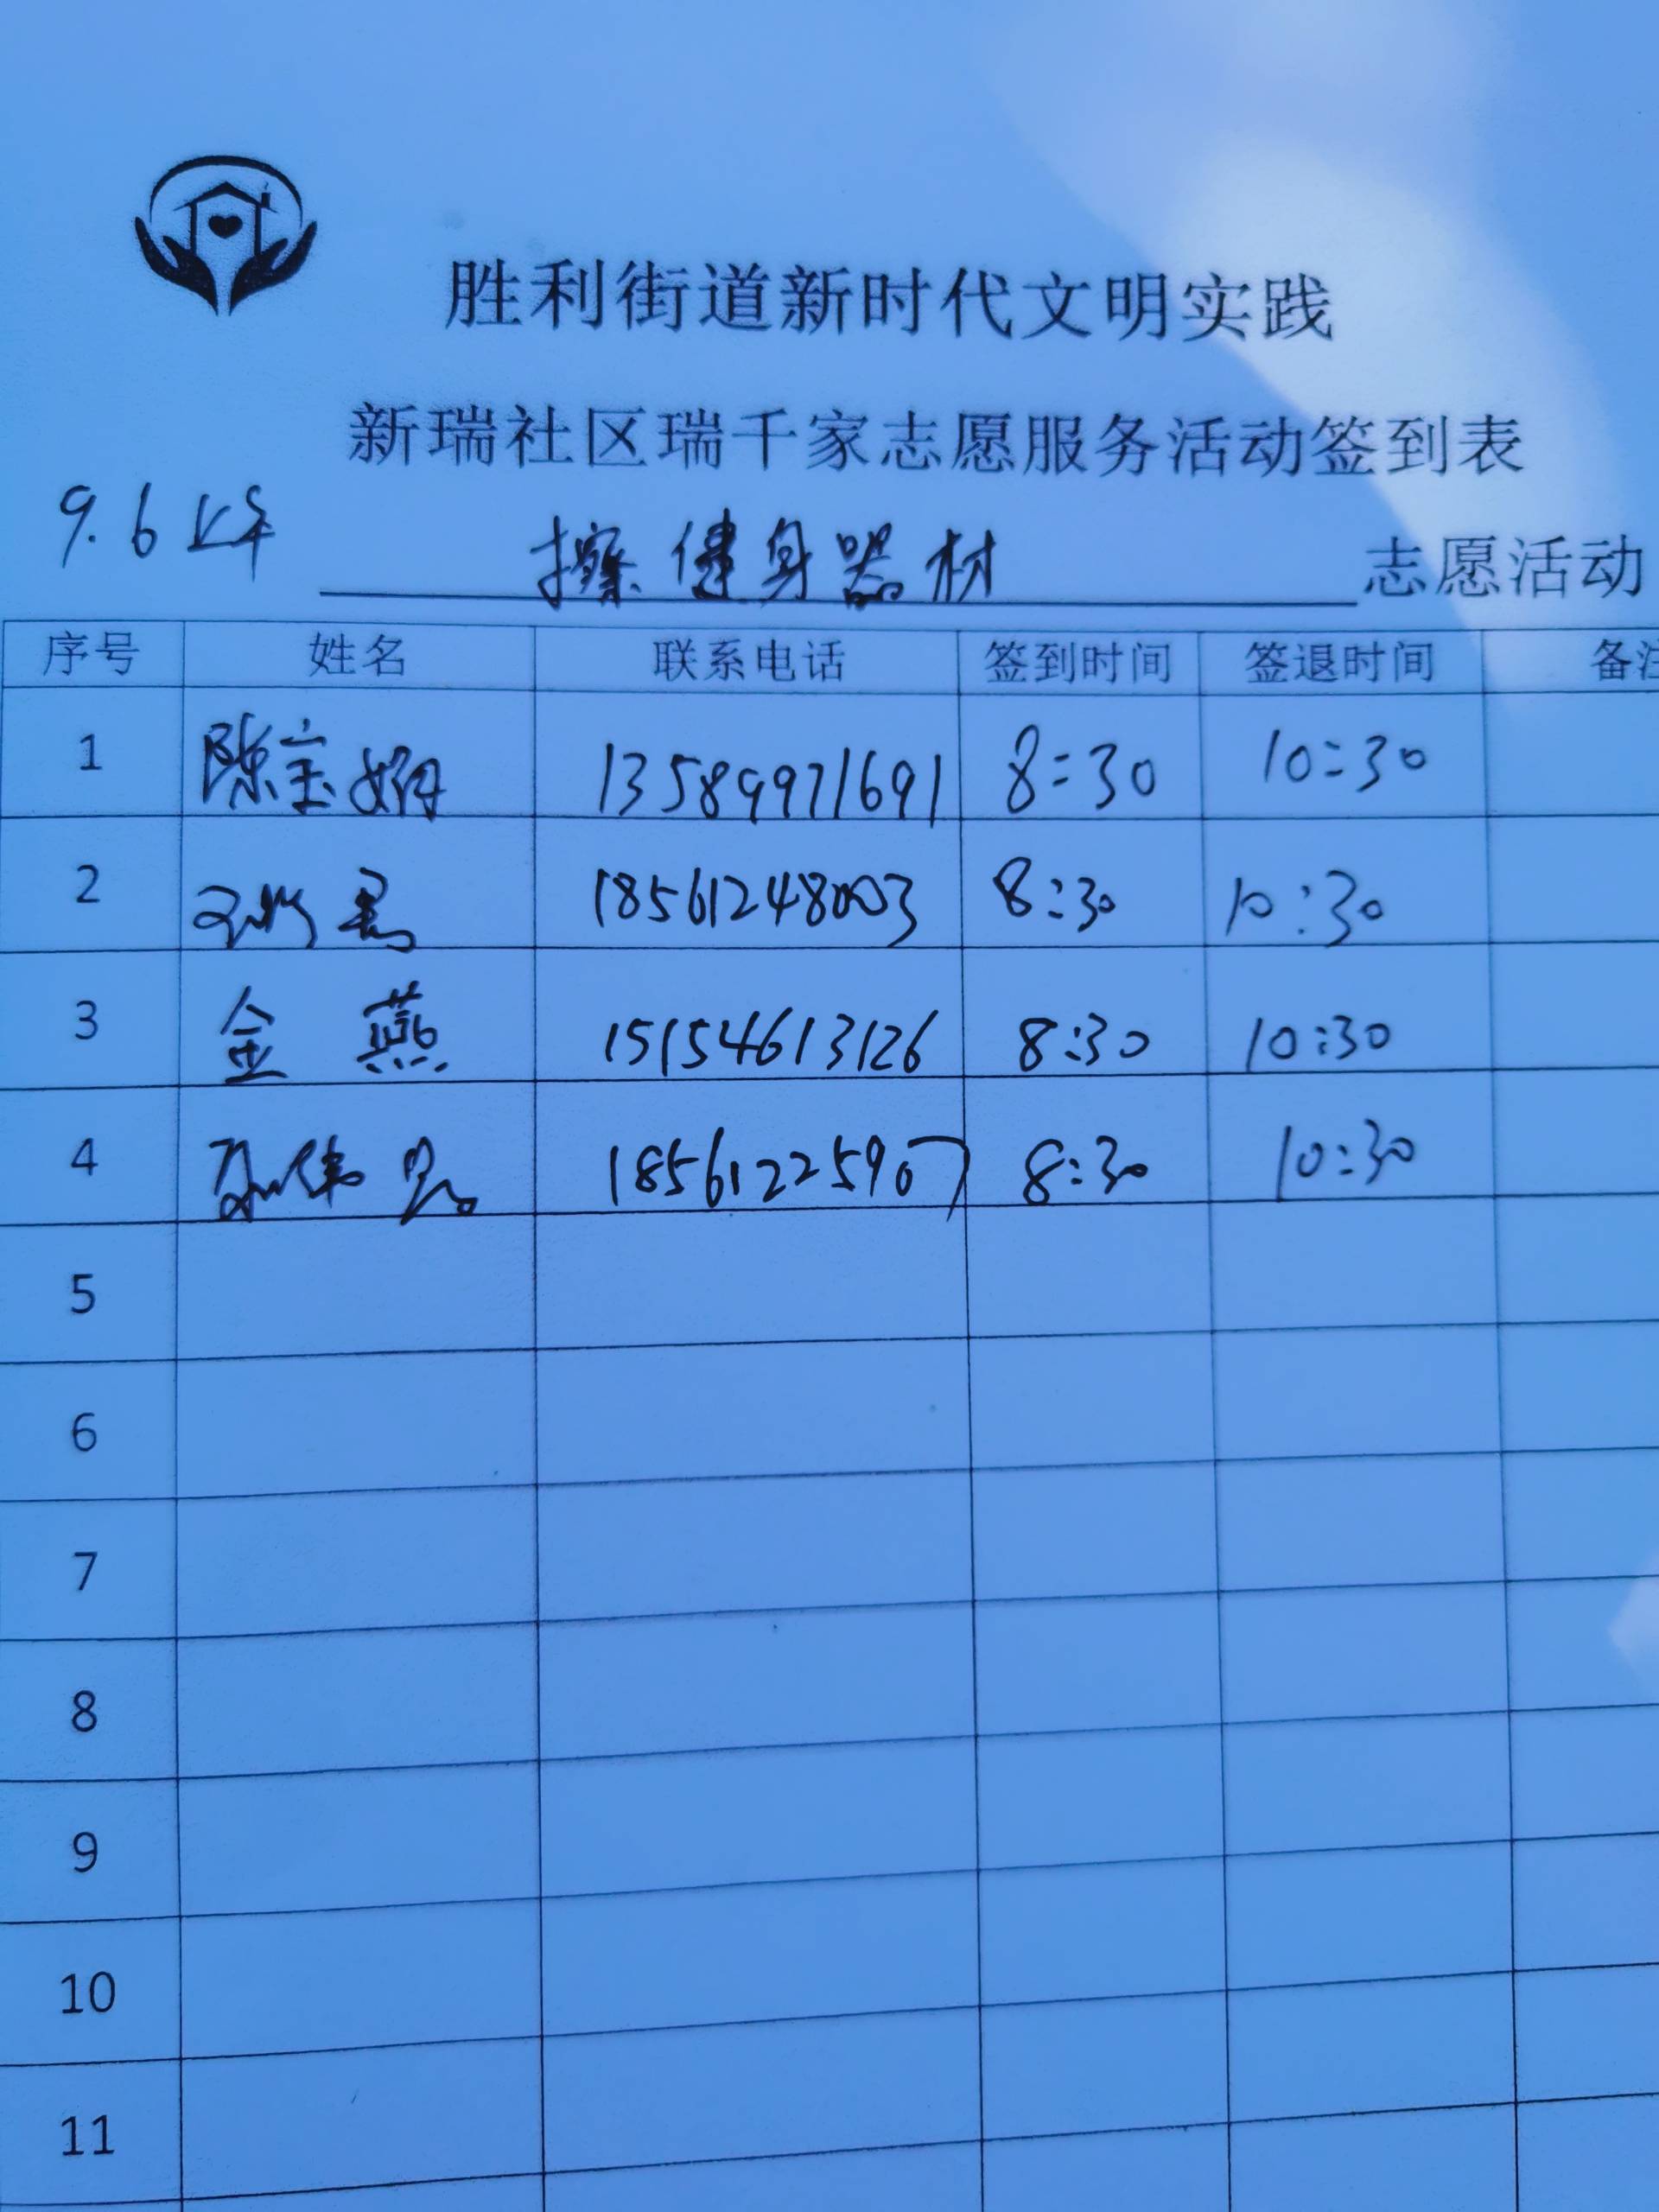 胜利街道新时代文明实践
新瑞社区瑞千家志愿服务活动签到表
9.6上午
擦健身器材 志愿活动
序号 姓名 联系电话 签到时间 签退时间 备注
1 陈宝娟 13589971691 8:30 10:30
2 18561248003 8:30 10:30
3 金燕 15154613126 8:30 10:30
4 18561225907 8:30 10:30
5
6
7
8
9
10
11